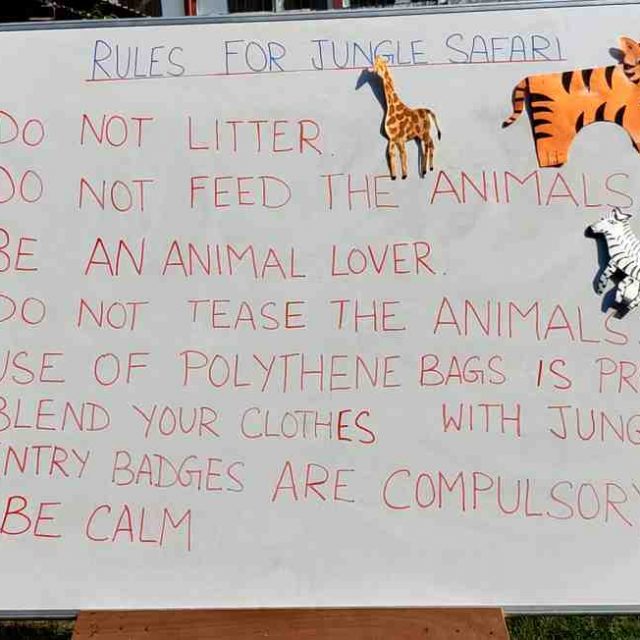 RULES FOR JUNGLE SAFARI
DO NOT LITTER.
DO NOT FEED THE ANIMALS
BE AN ANIMAL LOVER.
DO NOT TEASE THE ANIMALS.
USE OF POLYTHENE BAGS IS PR
BLEND YOUR CLOTHES WITH JUNG
ENTRY BADGES ARE COMPULSORY
BE CALM